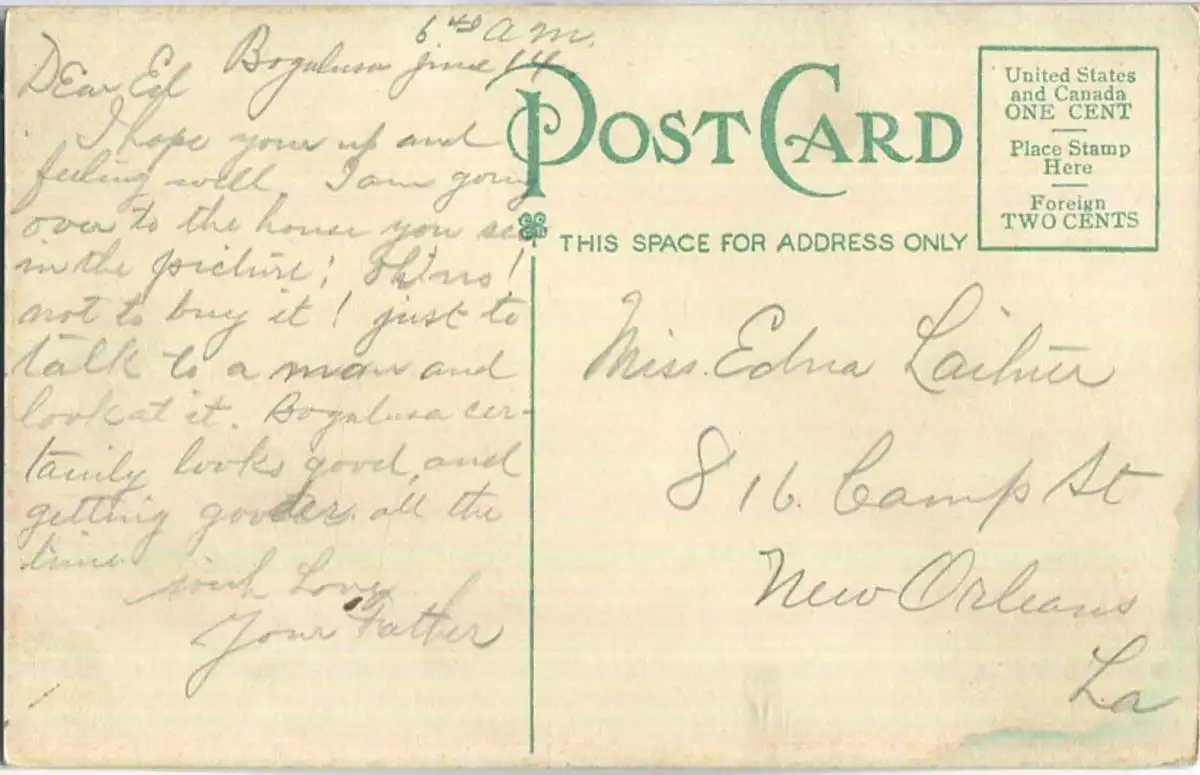 6 40 A M.
Bogalusa june 14
Dear Ed
I hope your up and
feeling well. I am going
over to the house you see
in the picture; Oh! no!
not to buy it! just to
talk to a man and
look at it. Bogalusa cer-
tainly looks good, and
getting gooder all the
time
with Love
Your Father
POST CARD
THIS SPACE FOR ADDRESS ONLY
United States
and Canada
ONE CENT
Place Stamp
Here
Foreign
TWO CENTS
Miss. Edna
816. Camp St
New Orleans
La